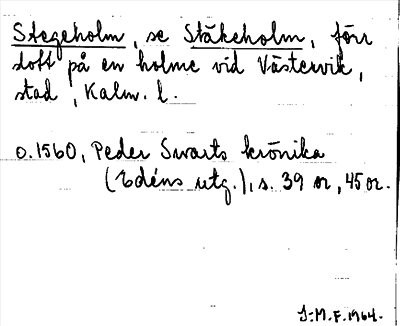 Stegeholm, se Stäkeholm, förr
slott på en holme vid Västervik,
stad, Kalm. l.
o. 1560, Peder Swarts krönika
(Edéns utg.), s. 39 or, 45 or.
I-M.F. 1964.